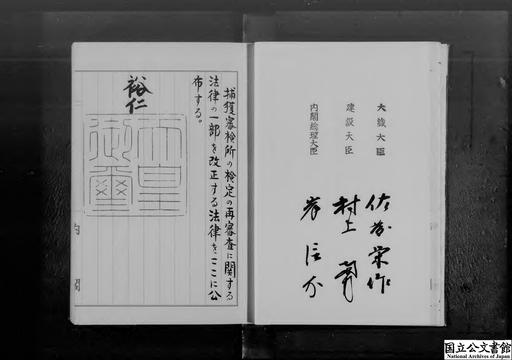 捕獲審検所の検定の再審査に関する
法律の一部を改正する法律をここに公
布する。
裕仁
天皇
御璽
内閣
大蔵大臣
佐藤栄作
建設大臣
村上勇
内閣総理大臣
岸信介
国立公文書館
National Archives of Japan